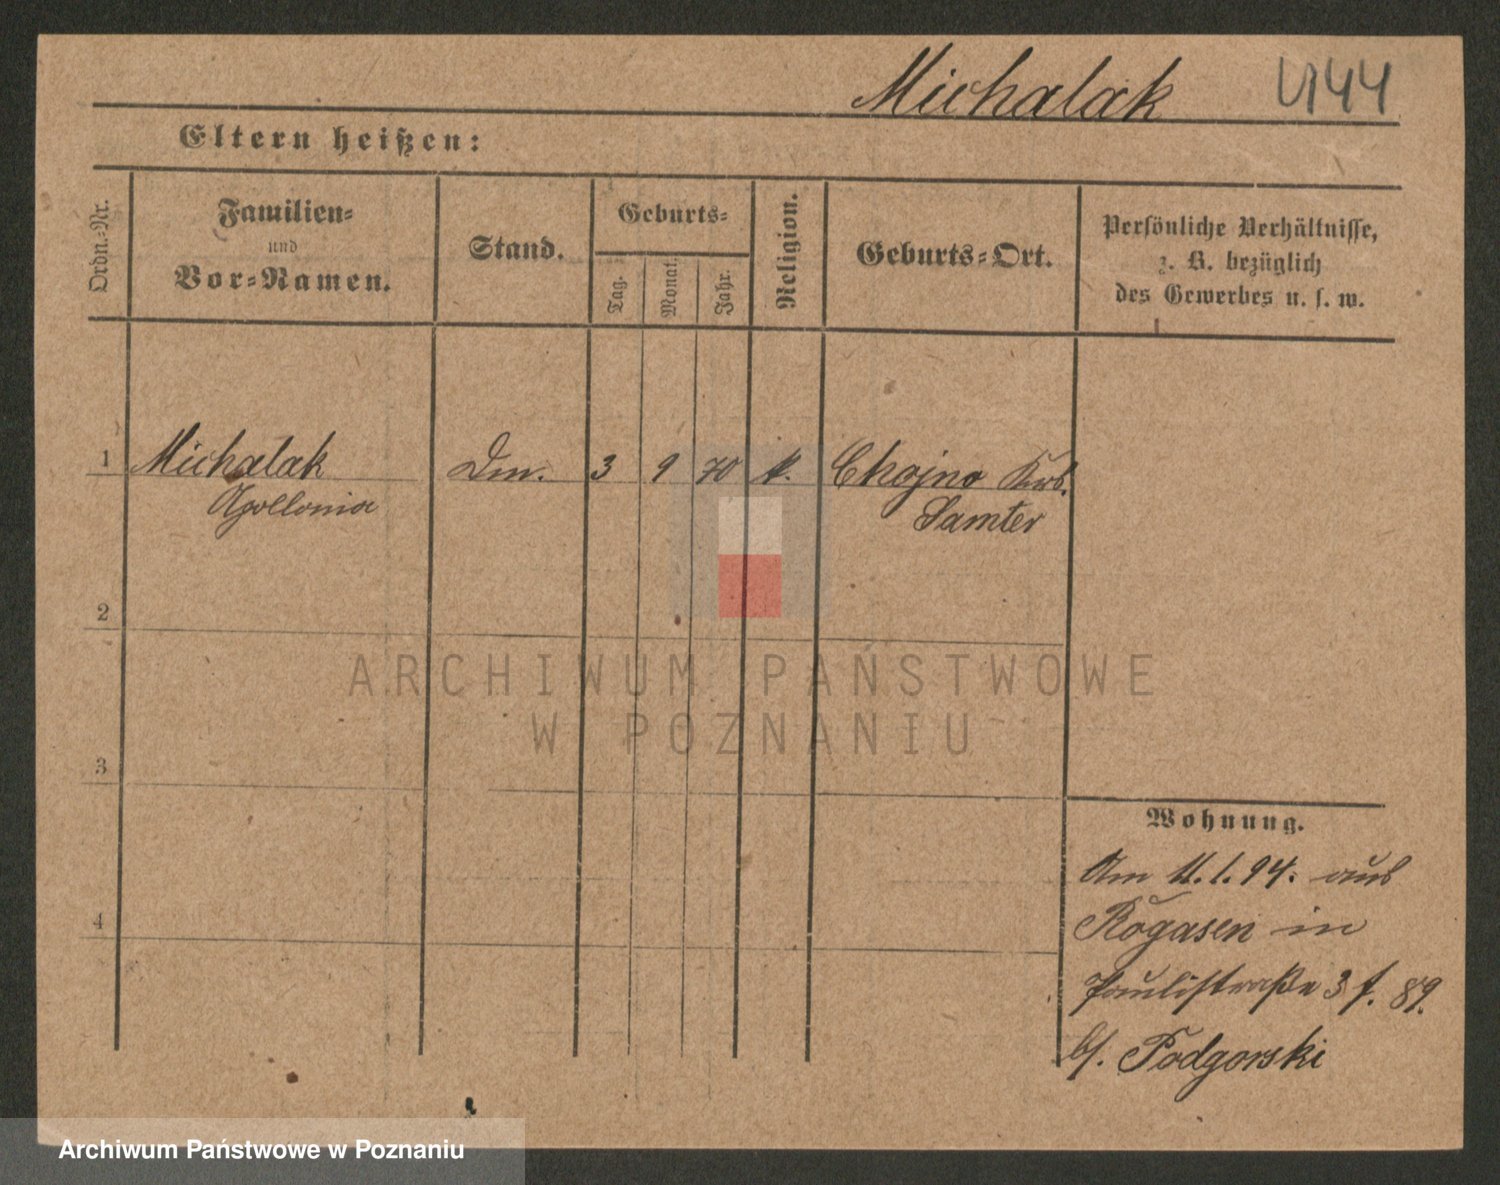 Michalak 4144
Eltern heißen:
Ordn.-Nr.
Familien-
und
Vor-Namen.
Stand.
Geburts-
Tag.
Monat.
Jahr.
Religion.
Geburts-Ort.
Persönliche Verhältnisse,
z. B. bezüglich
des Gewerbes u. s. w.
1 Michalak Dm. 3 9 70 k. Chojno Krs.
Apollonia Samter
2
ARCHIWUM PAŃSTWOWE
W POZNANIU
3
Wohnung.
Am 11.1.94. aus
4 Rogasen in
Paulistraße 3 f. 89.
b/. Podgorski
Archiwum Państwowe w Poznaniu